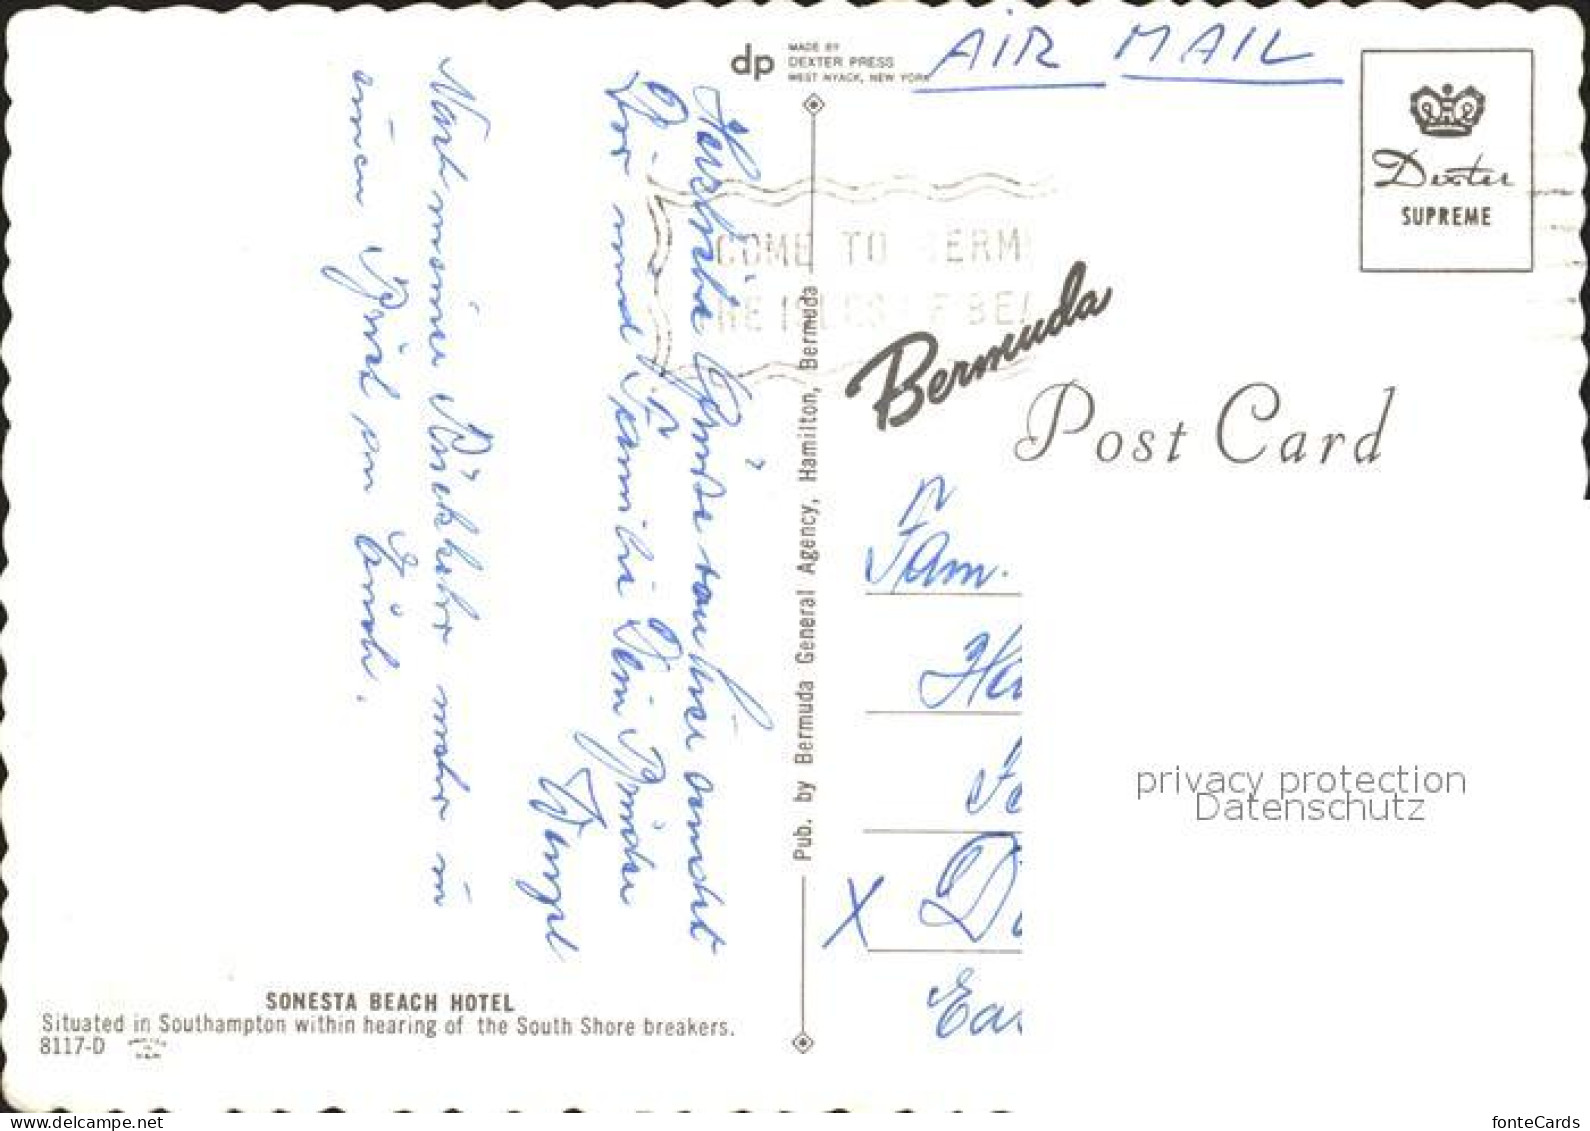 AIR MAIL
dp
MADE BY
DEXTER PRESS
WEST NYACK, NEW YORK
Dexter
SUPREME
COME TO BERM
Bermuda
Post Card
Herzliche Grüße von hier sendet
Dir und Familie Dein Bruder
Nach meiner Rückkehr mehr in
einem Brief an Euch.
Pub. by Bermuda General Agency, Hamilton, Bermuda
Fam.
Ha
X
Ea
privacy protection
Datenschutz
SONESTA BEACH HOTEL
Situated in Southampton within hearing of the South Shore breakers.
8117-D
www.delcampe.net
fonteCards